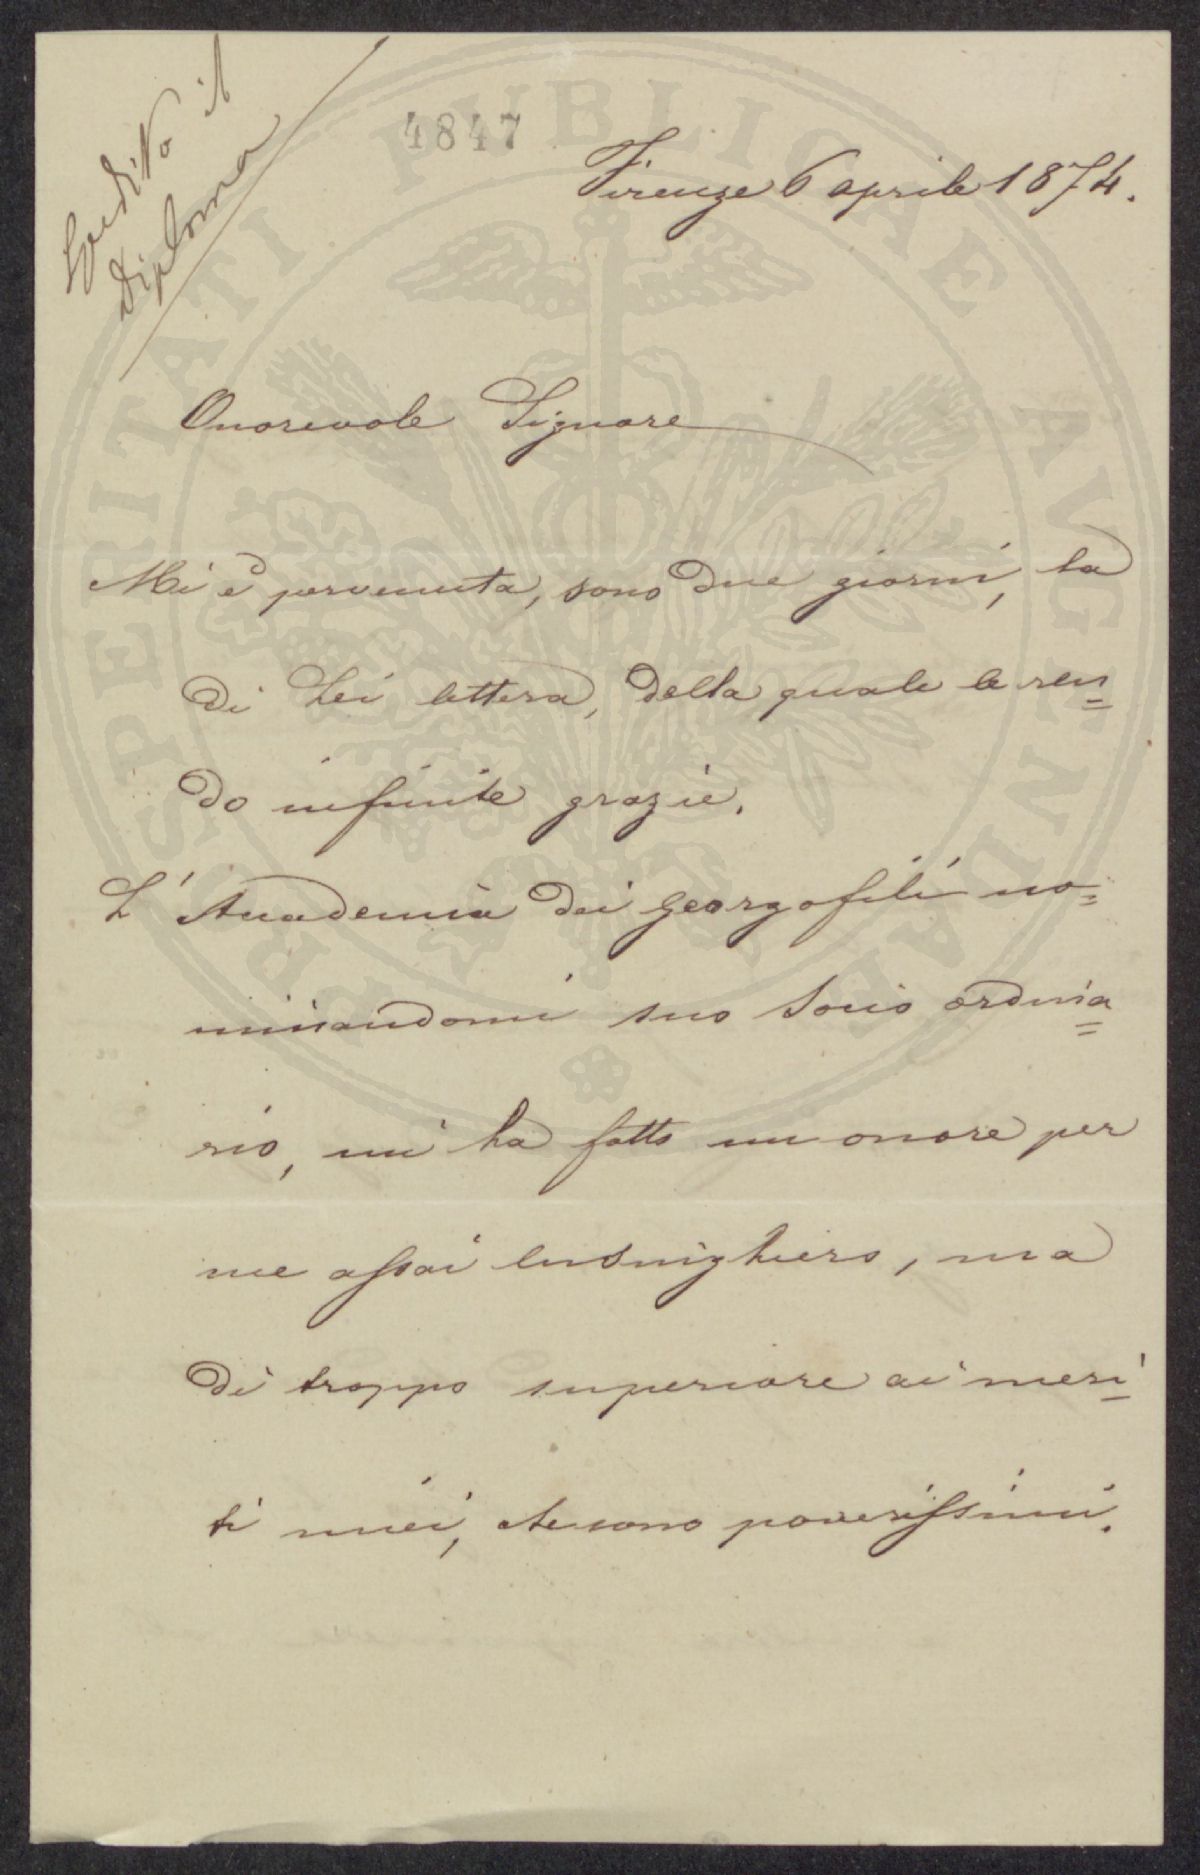 Spedito il
Diploma
4847
Firenze 6 aprile 1874.
Onorevole Signore
Mi è pervenuta, sono due giorni, la
di Lei lettera, della quale le ren=
do infinite grazie.
L'Accademia dei Georgofili no=
minandomi suo Socio ordina=
rio, mi ha fatto un onore per
me assai lusinghiero, ma
di troppo superiore ai meri=
ti miei, che sono poverissimi.
PROSPERITATI PVBLICAE AVGENDAE